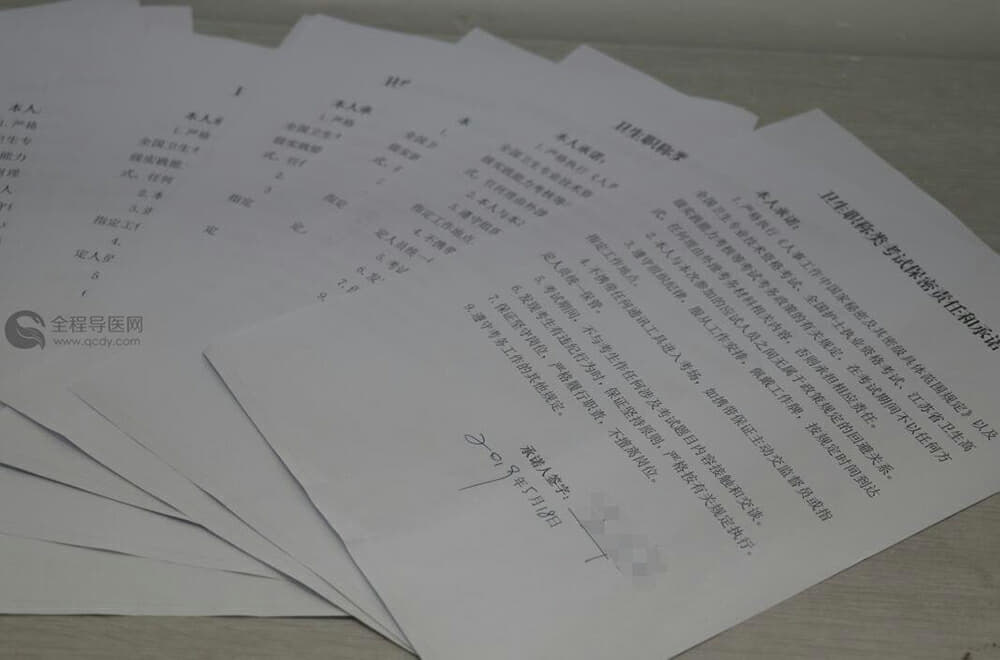 卫生职称类考试保密责任和承诺
本人承诺：
1.严格执行《人事工作中国家秘密及其密级具体范围规定》以及
全国卫生专业技术资格考试、全国护士执业资格考试、江苏省卫生高
级实践能力考核等考试考务政策的有关规定，在考试期间不以任何方
式、任何理由外泄考务材料相关内容，否则承担相应责任。
2.本人与本次参加的应试人员之间无属于政策规定的回避关系。
3.遵守组织纪律，服从工作安排，佩戴工作牌，按规定时间到达
指定工作地点。
4.不携带任何通讯工具进入考场，如携带保证主动交监督员或指
定人员统一保管。
5.考试期间，不与考生作任何涉及考试题目内容接触和交谈。
6.发现考生有违纪行为时，保证坚持原则，严格按有关规定执行。
7.保证坚守岗位，严格履行职责，不擅离岗位。
9.遵守考务工作的其他规定。
承诺人签字：
2019年5月18日
卫生职称类
本人承诺：
1.严格执行《人事
全国卫生专业技术资
级实践能力考核等
式、任何理由外泄
2.本人与本次
3.遵守组织
指定工作地点
4.不携带
定人员统一
5.考试
6.发
7.
9.
本人承
1.严格
全国卫生专
级实践能
式、任何
指定
定
本人承
1.严格
全国卫生专
级实践能
式、任何
2.本
3.遵
指定工
4.
定人员
5
全程导医网
www.qcdy.com